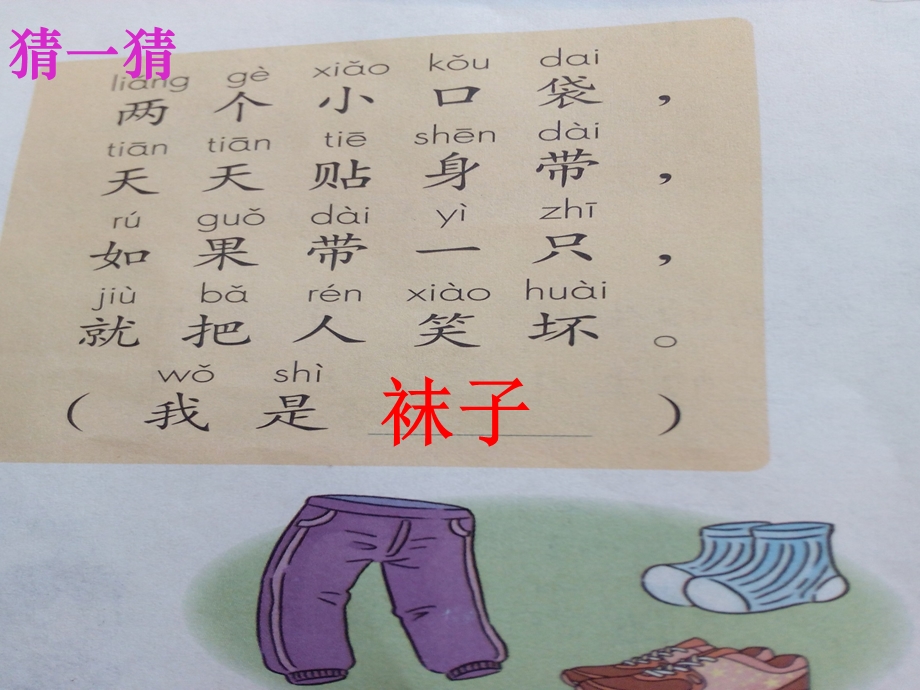 猜一猜
liáng gè xiǎo kǒu dai
两个小口袋，
tiān tiān tiē shēn dài
天天贴身带，
rú guǒ dài yì zhī
如果带一只，
jiù bǎ rén xiào huài
就把人笑坏。
wǒ shì
（我是 袜子 ）